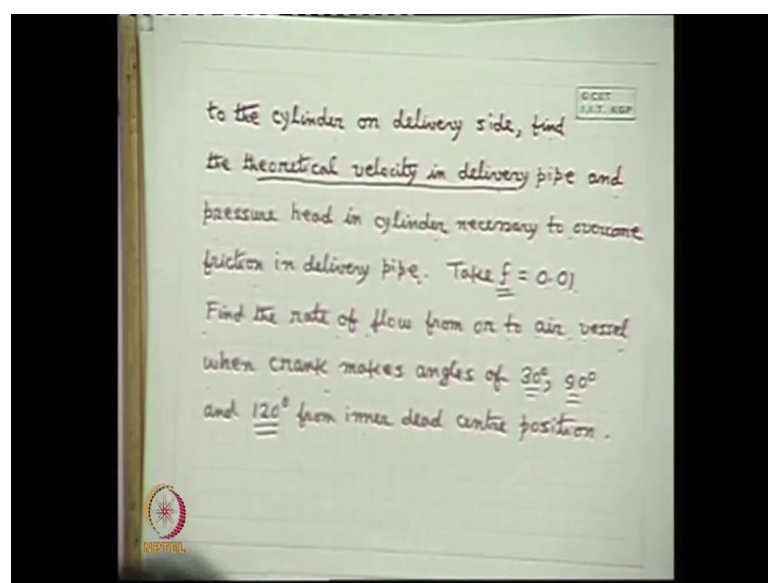 © CET
I.I.T. KGP
to the cylinder on delivery side, find
the theoretical velocity in delivery pipe and
pressure head in cylinder necessary to overcome
friction in delivery pipe. Take f = 0.01
Find the rate of flow from or to air vessel
when crank makes angles of 30°, 90°
and 120° from inner dead centre position.
NPTEL